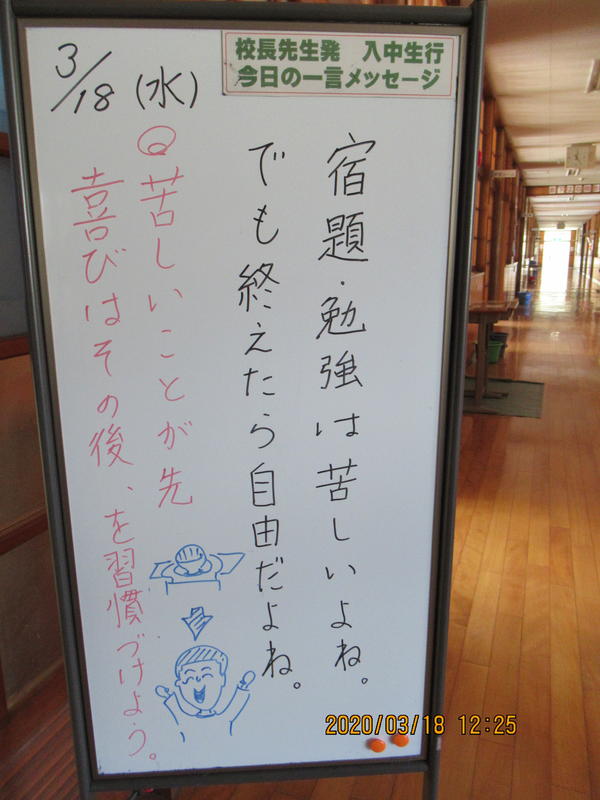 校長先生発　入中生行
今日の一言メッセージ
3/18(水)
宿題・勉強は苦しいよね。
でも終えたら自由だよね。
◎苦しいことが先
喜びはその後、を習慣づけよう。
2020/03/18 12:25